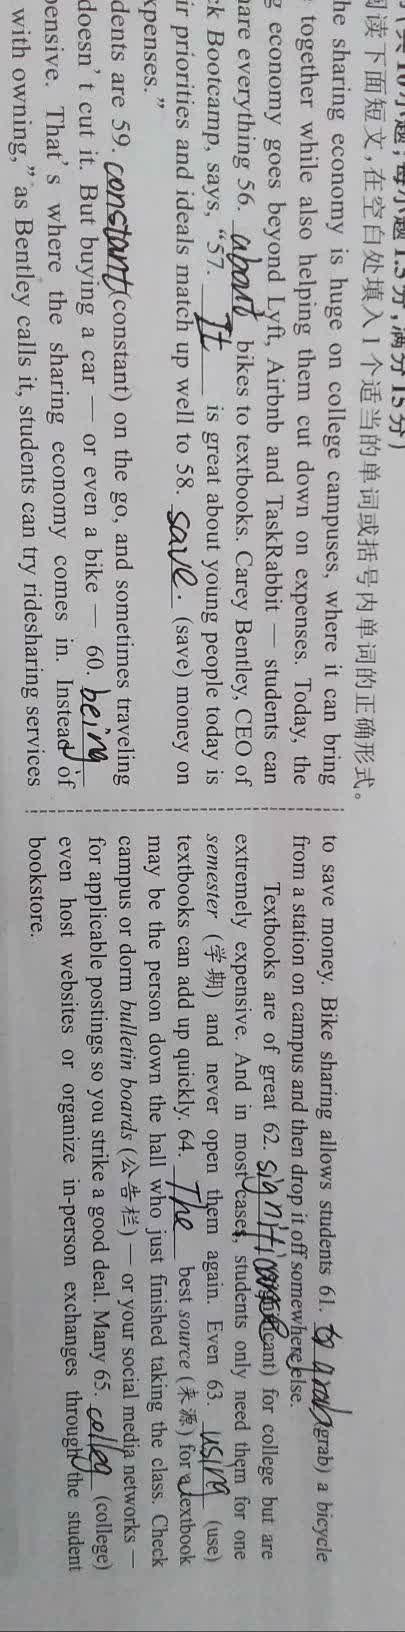 (共10小题;每小题1.5分,满分15分)
阅读下面短文,在空白处填入1个适当的单词或括号内单词的正确形式。
he sharing economy is huge on college campuses, where it can bring
together while also helping them cut down on expenses. Today, the
g economy goes beyond Lyft, Airbnb and TaskRabbit — students can
are everything 56. about bikes to textbooks. Carey Bentley, CEO of
ck Bootcamp, says, “57. It is great about young people today is
ir priorities and ideals match up well to 58. save. (save) money on
xpenses.”
dents are 59. constant (constant) on the go, and sometimes traveling
doesn't cut it. But buying a car — or even a bike — 60. being
ensive. That's where the sharing economy comes in. Instead of
with owning,” as Bentley calls it, students can try ridesharing services
to save money. Bike sharing allows students 61. to grab (grab) a bicycle
from a station on campus and then drop it off somewhere else.
Textbooks are of great 62. significant) for college but are
extremely expensive. And in most cases, students only need them for one
semester (学期) and never open them again. Even 63. using (use)
textbooks can add up quickly. 64. The best source (来源) for a textbook
may be the person down the hall who just finished taking the class. Check
campus or dorm bulletin boards (公告栏) — or your social media networks —
for applicable postings so you strike a good deal. Many 65. colleg (college)
even host websites or organize in-person exchanges through the student
bookstore.